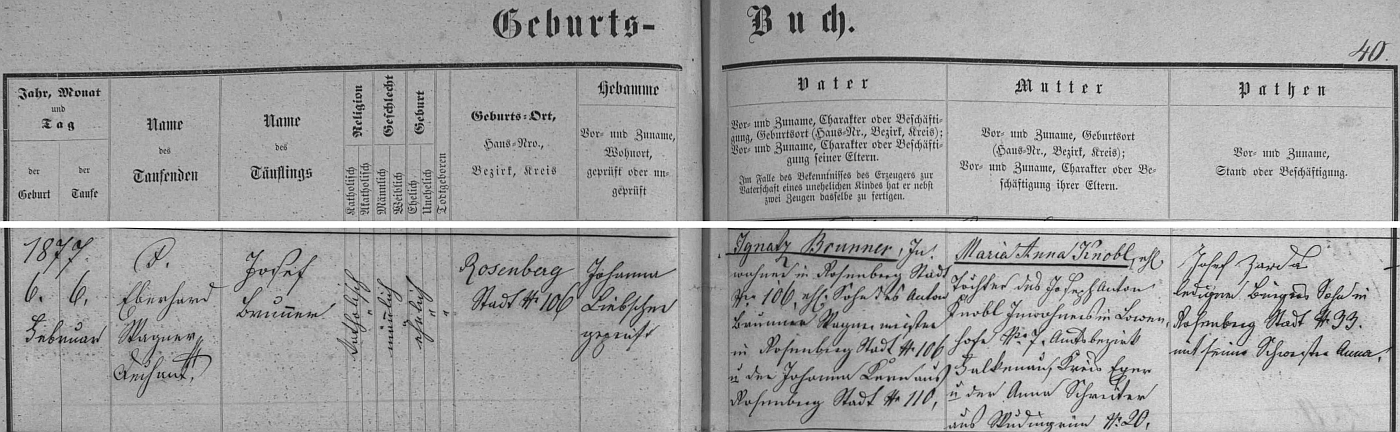 Geburts-Buch.
40.
Jahr, Monat
und
Tag
der
Geburt
der
Taufe
Name
des
Taufenden
Name
des
Täuflings
Religion
Katholisch
Akatholisch
Geschlecht
Männlich
Weiblich
Geburt
Ehelich
Unehelich
Todtgeboren
Geburts-Ort,
Haus-Nro.,
Bezirk, Kreis
Hebamme
Vor- und Zuname,
Wohnort,
geprüft oder un-
geprüft
Vater
Vor- und Zuname, Charakter oder Beschäfti-
gung, Geburtsort (Haus-Nr., Bezirk, Kreis);
Vor- und Zuname, Charakter oder Beschäfti-
gung seiner Eltern.
Im Falle des Bekenntnisses des Erzeugers zur
Vaterschaft eines unehelichen Kindes hat er nebst
zwei Zeugen dasselbe zu fertigen.
Mutter
Vor- und Zuname, Geburtsort
(Haus-Nr., Bezirk, Kreis);
Vor- und Zuname, Charakter oder Be-
schäftigung ihrer Eltern.
Pathen
Vor- und Zuname,
Stand oder Beschäftigung.
1877.
6. 6.
Februar
P.
Eberhard
Wagner
Dechant
Josef
Brunner
katholisch
männlich
ehelich
Rosenberg
Stadt № 106
Johanna
Liebscher
geprüft
Ignatz Brunner, In-
wohner in Rosenberg Stadt
№ 106, ehl. Sohn des Anton
Brunner Wagnermeister
in Rosenberg Stadt № 106
u der Johanna Kern aus
Rosenberg Stadt № 110,
Maria Anna Knobl, ehl
Tochter des Joseph Anton
Knobl Inwohners in Löwen-
hof № 7, Amtsbezirk
Falkenau, Kreis Eger
u der Anna Schreiter
aus № 20,
Josef Zarda
lediger Bürgers Sohn in
Rosenberg Stadt № 33.
mit seiner Schwester Anna.